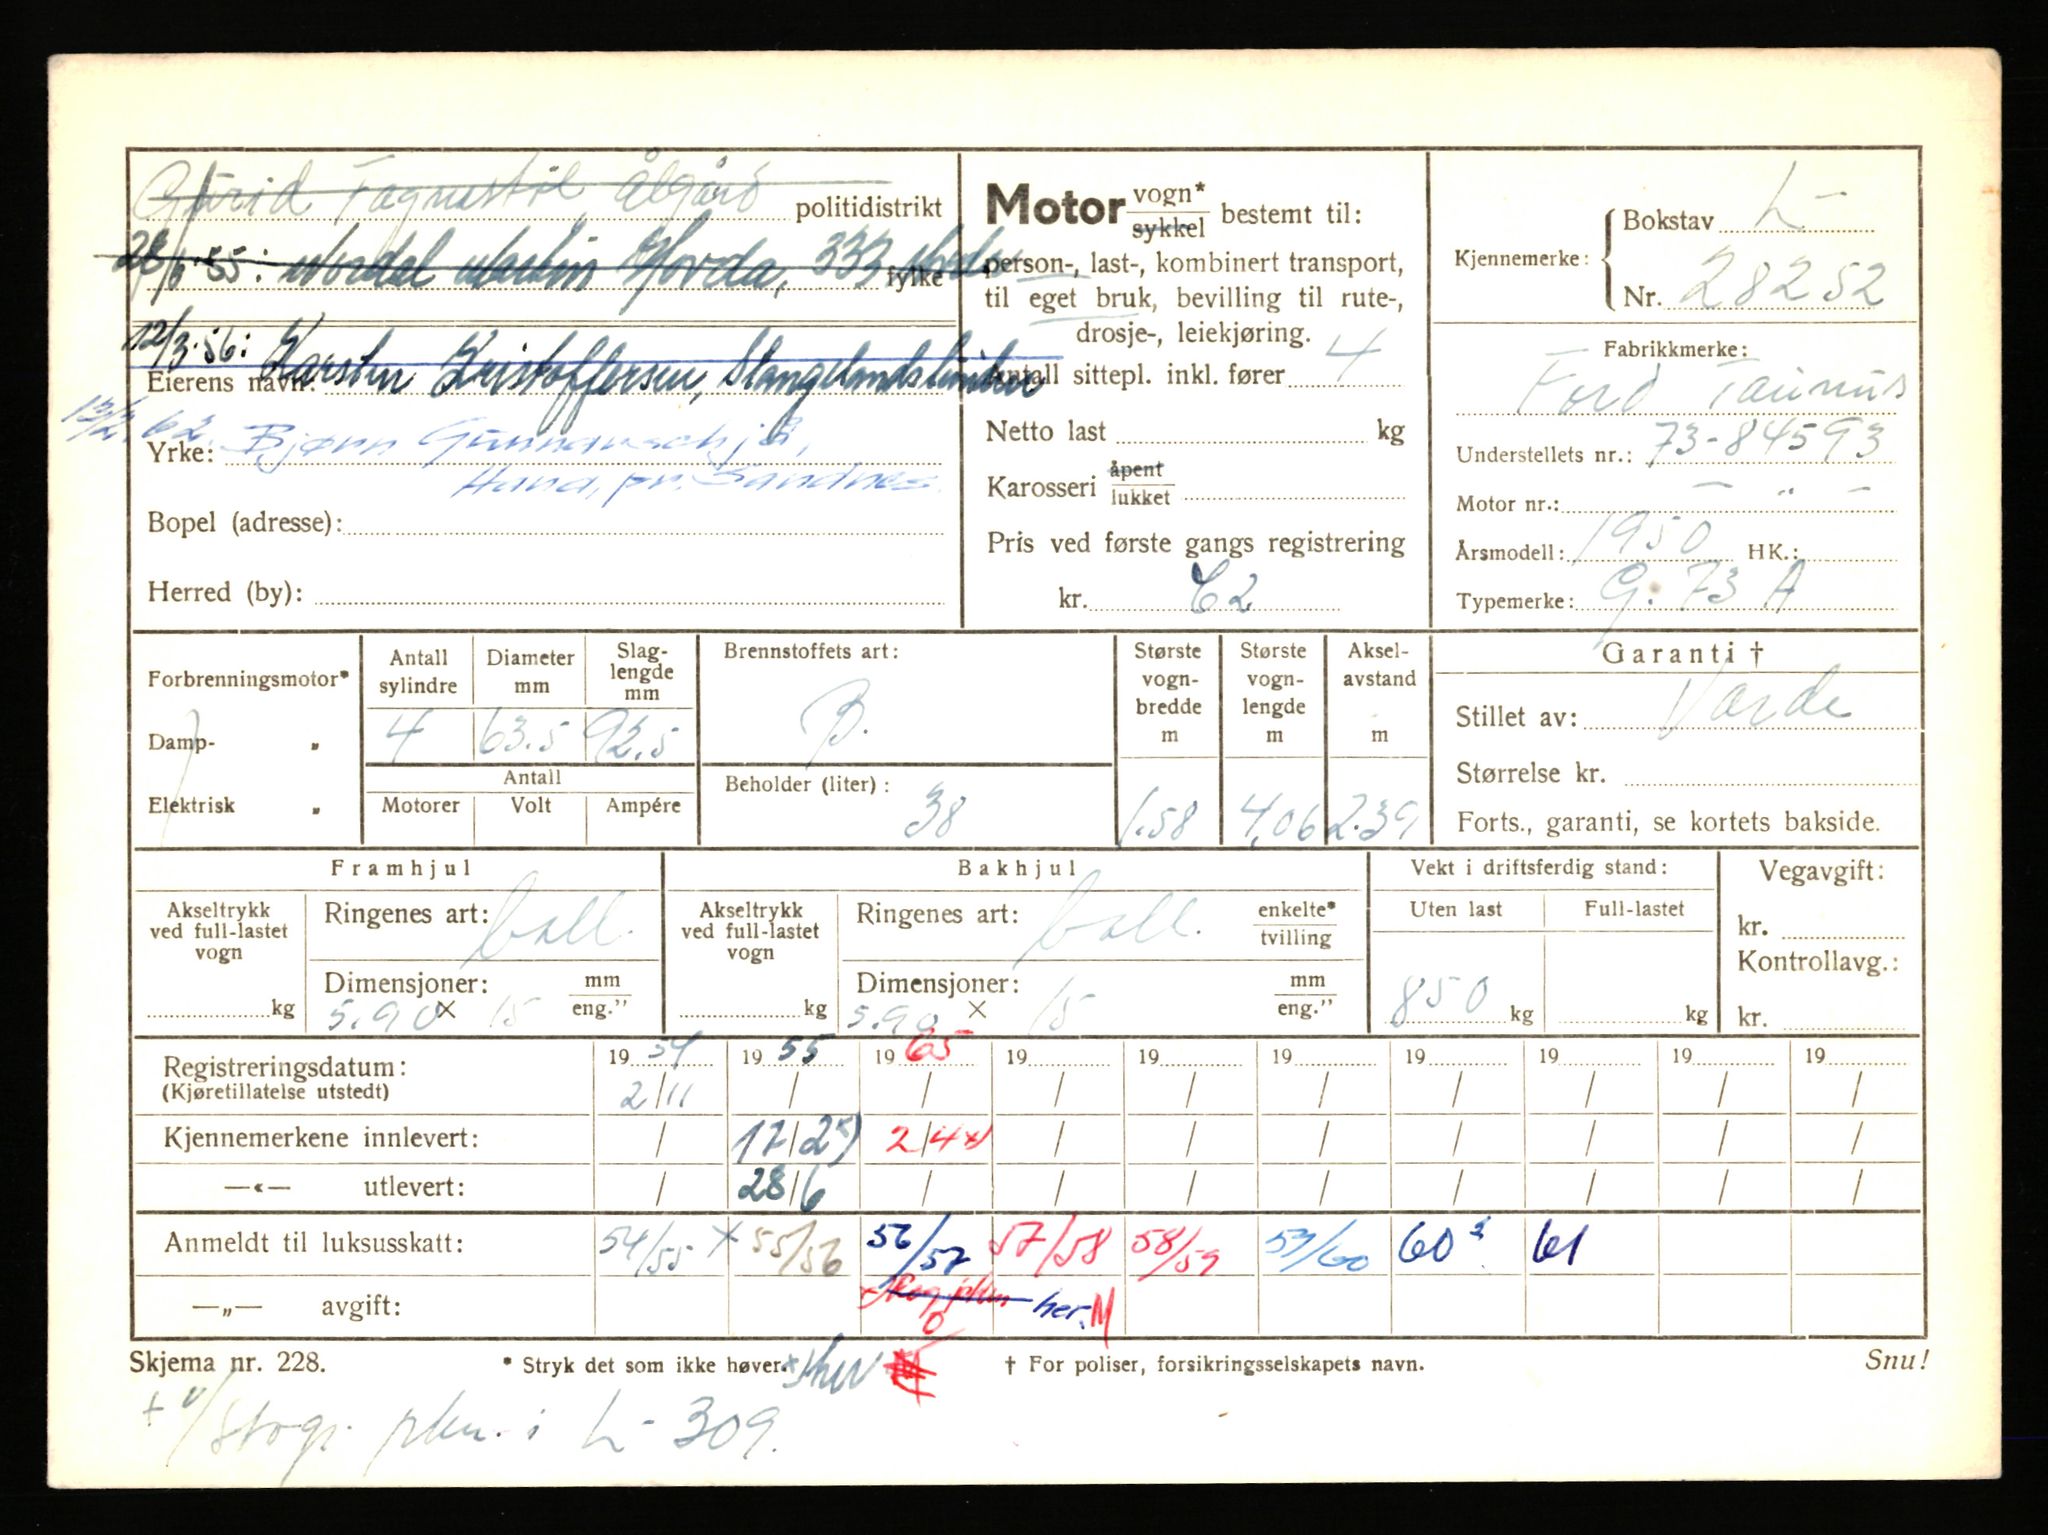 Fagnastøl Ålgård politidistrikt
28/6 55: Martin fylke
12/3 56: Karsten Kristoffersen, Stangelandsbruket
Eierens navn:
13/2 62. Bjørn
Yrke:
Hana, pr. Sandnes.
Bopel (adresse):
Herred (by):
Motor vogn* / sykkel bestemt til:
person-, last-, kombinert transport,
til eget bruk, bevilling til rute-,
drosje-, leiekjøring.
Antall sittepl. inkl. fører 4
Netto last kg
Karosseri åpent / lukket
Pris ved første gangs registrering
kr. C2
Kjennemerke: Bokstav L-
Nr. 28252
Fabrikkmerke:
Ford Taunus
Understellets nr.: 73-84593
Motor nr.: — „ —
Årsmodell: 1950 HK.:
Typemerke: G. 73 A
Forbrenningsmotor*
Damp- „
Elektrisk „
Antall sylindre 4
Diameter mm 63.5
Slaglengde mm 92.5
Antall
Motorer Volt Ampére
Brennstoffets art: B.
Beholder (liter): 38
Største vognbredde m 1.58
Største vognlengde m 4,06
Akselavstand m 2.39
Garanti †
Stillet av: Varde
Størrelse kr.
Forts., garanti, se kortets bakside.
Framhjul
Akseltrykk ved full-lastet vogn kg
Ringenes art: ball.
Dimensjoner: mm / eng.”
5.90 × 15
Bakhjul
Akseltrykk ved full-lastet vogn kg
Ringenes art: ball. enkelte* / tvilling
Dimensjoner: mm / eng.”
5.90 × 15
Vekt i driftsferdig stand:
Uten last Full-lastet
850 kg kg
Vegavgift:
kr.
Kontrollavg.:
kr.
Registreringsdatum: 19 54 19 55 19 65 19 19 19 19 19 19 19
(Kjøretillatelse utstedt) 2/11 / / / / / / / / /
Kjennemerkene innlevert: / 17/2 x) 2/4 x) / / / / / / /
—«— utlevert: / 28/6 / / / / / / / /
Anmeldt til luksusskatt: 54/55 x 55/56 56/57 57/58 58/59 59/60 60 61
—„— avgift: her. M
Skjema nr. 228. * Stryk det som ikke høver. x) her † For poliser, forsikringsselskapets navn. Snu!
pkn. i L-309.